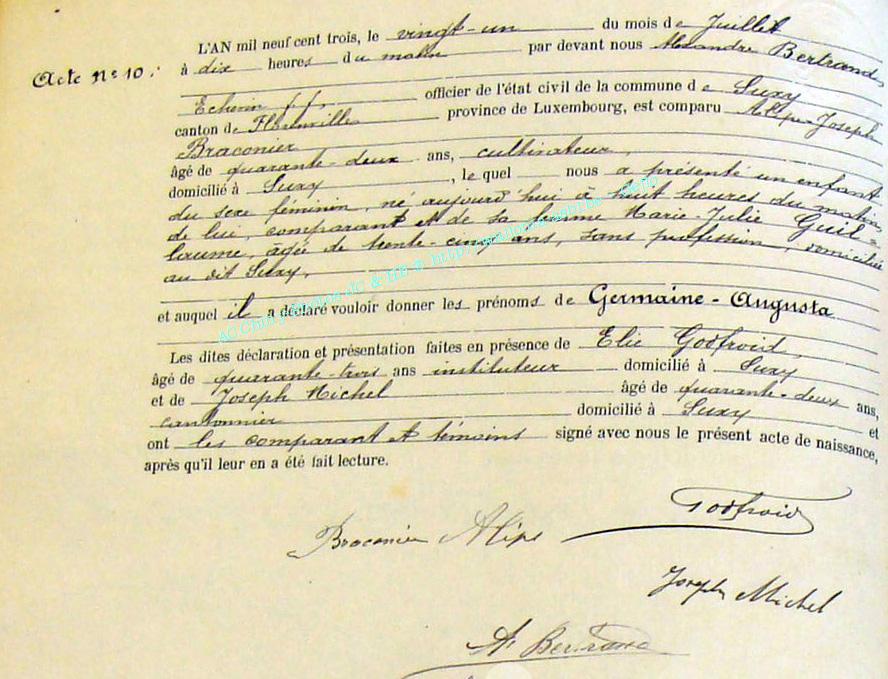 L'AN mil neuf cent trois, le vingt-un du mois de Juillet
Acte N° 10.
à dix heures du matin par devant nous Alexandre Bertrand,
Echevin ff, officier de l'état civil de la commune de Suxy
canton de Florenville province de Luxembourg, est comparu Alipe-Joseph
Braconier
âgé de quarante-deux ans, cultivateur,
domicilié à Suxy, le quel nous a présenté un enfant
du sexe féminin, né aujourd'hui à huit heures du matin,
de lui, comparant et de sa femme Marie-Julie Guil-
laume, âgée de trente-cinq ans, sans profession, domiciliée
au dit Suxy,
et auquel il a déclaré vouloir donner les prénoms de Germaine-Augusta
Les dites déclaration et présentation faites en présence de Elie Godfroid,
âgé de quarante-trois ans instituteur domicilié à Suxy
et de Joseph Michel âgé de quarante-deux ans,
cantonnier domicilié à Suxy et
ont les comparant et témoins signé avec nous le présent acte de naissance,
après qu'il leur en a été fait lecture.
Godfroid
Braconier Alipe
Joseph Michel
A. Bertrand